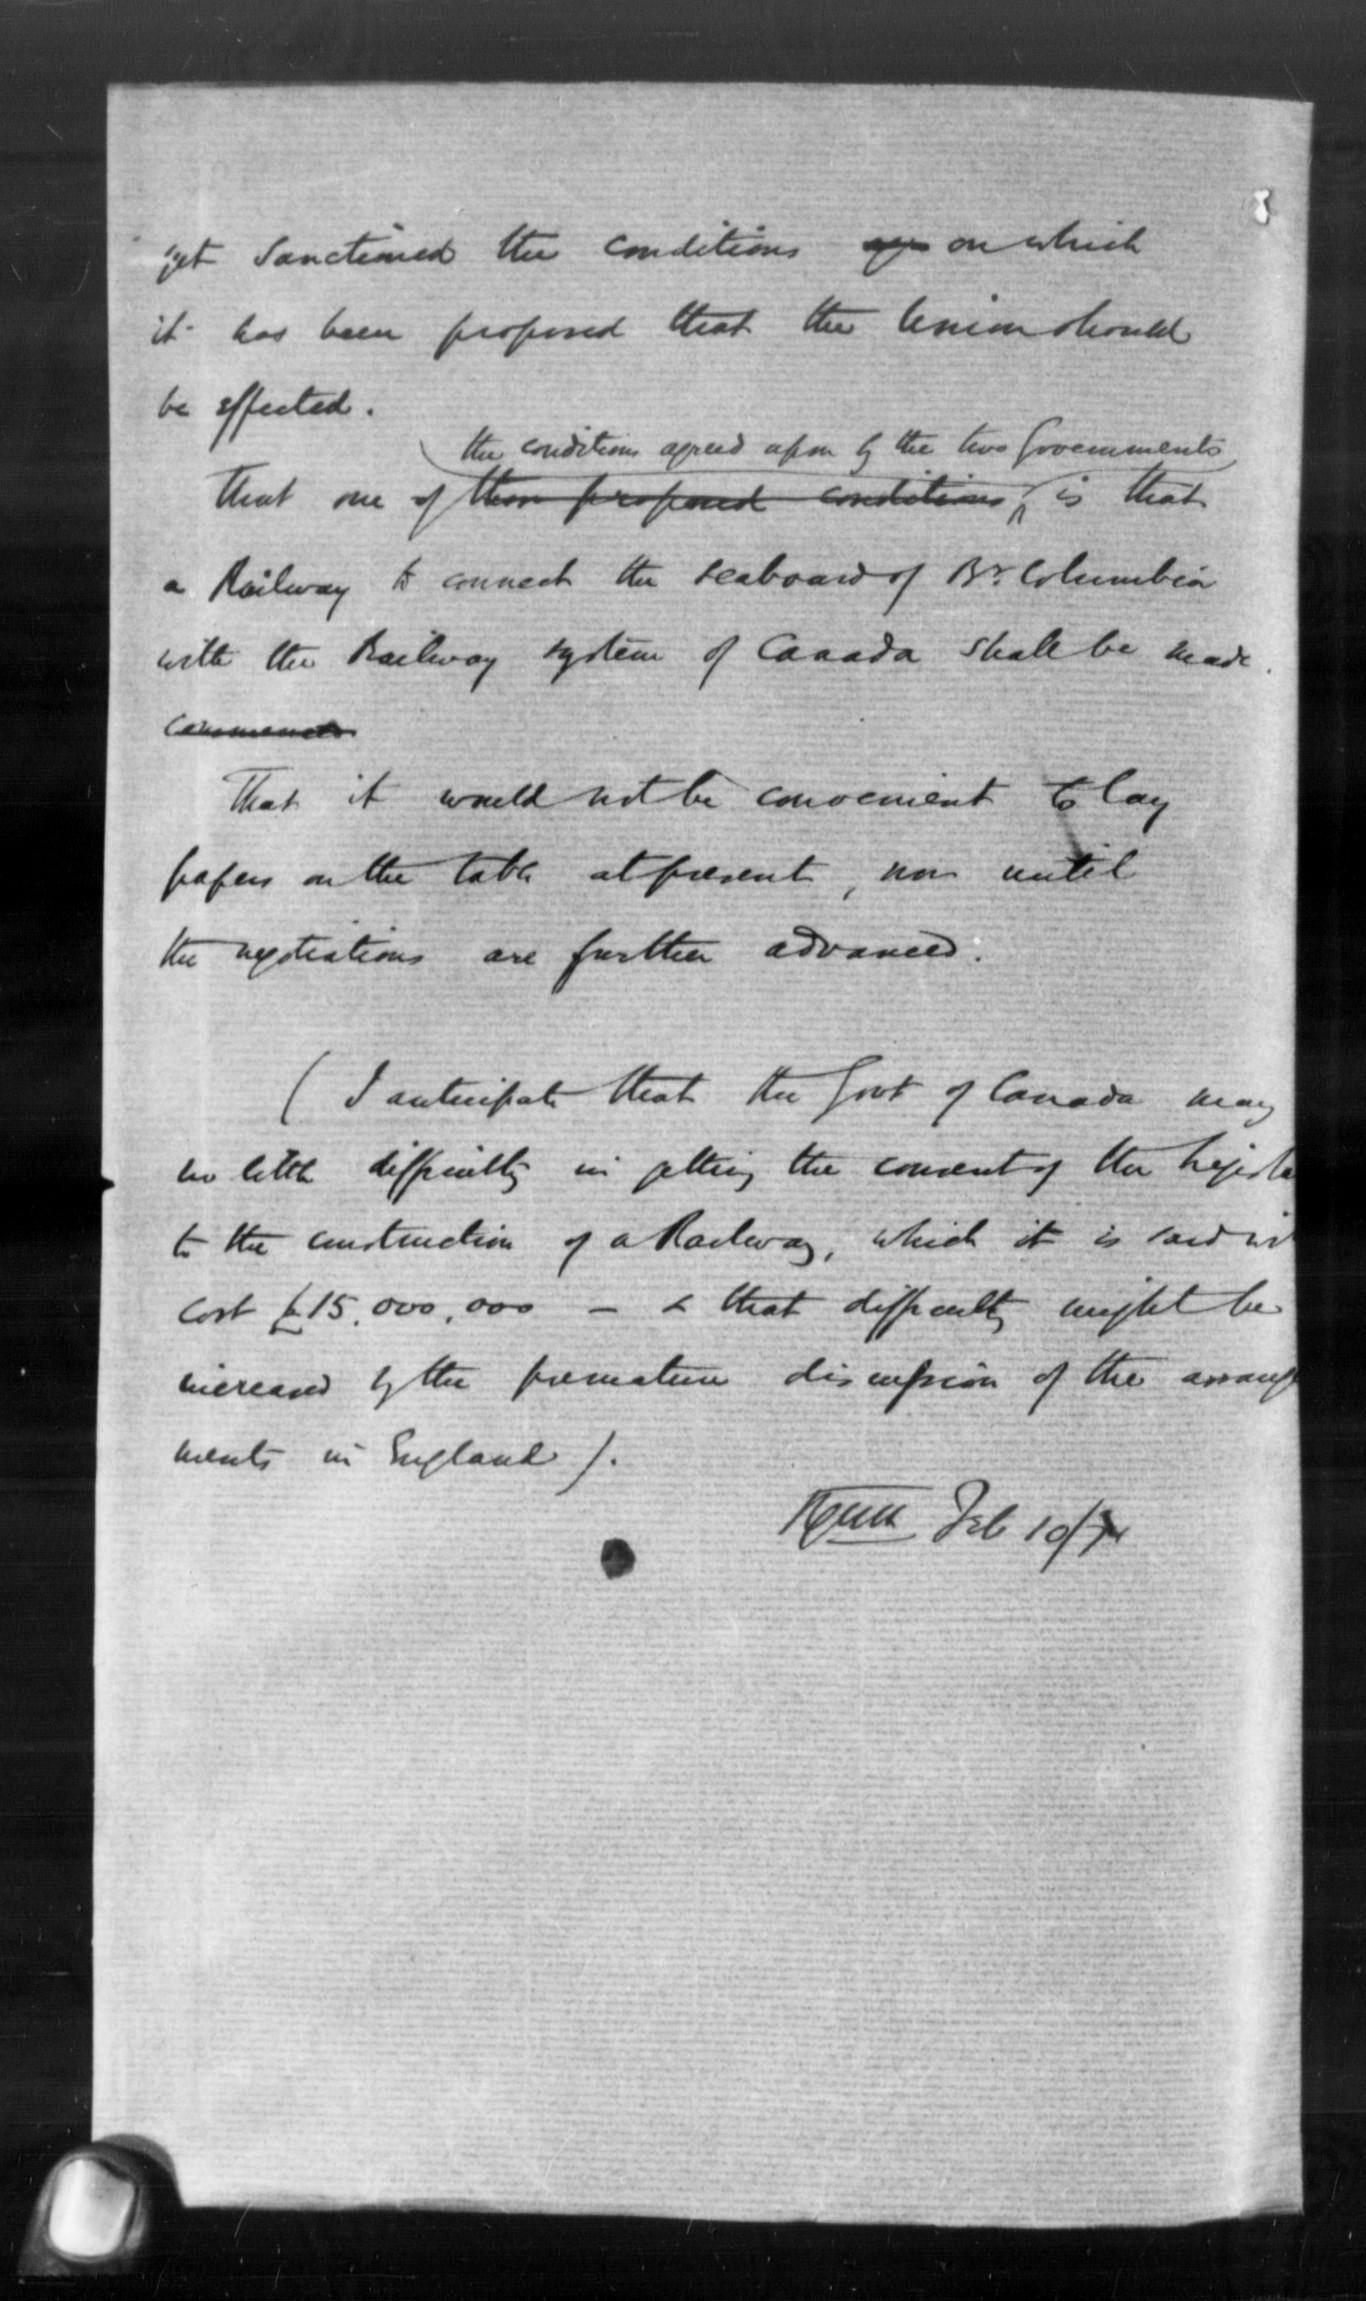 yet sanctioned the conditions upon on which
it has been proposed that the Union should
be effected.
the conditions agreed upon by the two Governments
That one of these proposed conditions is that
a Railway to connect the seaboard of Br. Columbia
with the Railway system of Canada shall be made.
commenced
That it would not be convenient to lay
papers on the table at present, nor until
the negotiations are further advanced.
( I anticipate that the Govt of Canada may
no little difficulty in getting the consent of the Legisla
to the construction of a Railway, which it is said wi
cost £15,000,000 – & that difficulty might be
increased by the premature discussion of the arrange
ments in England ).
Feb 10/71